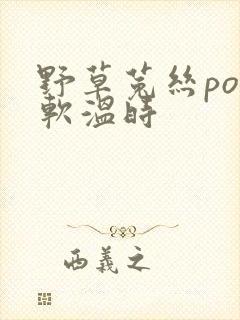 野草菟絲po
軟溫時
西義之